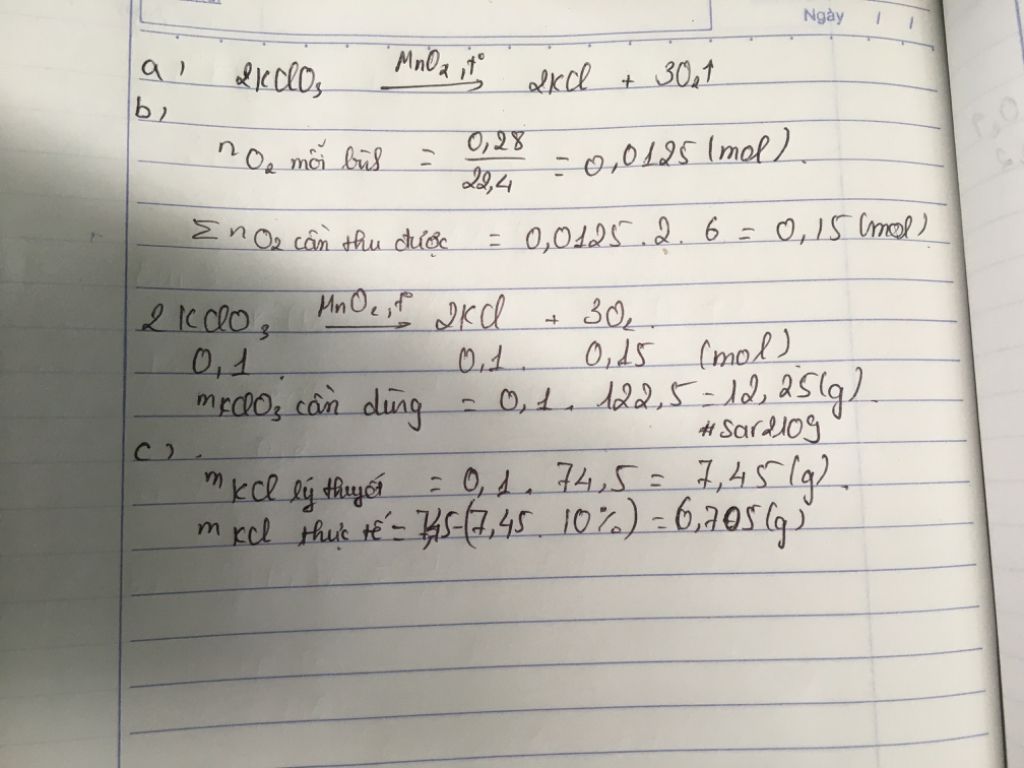 Ngày / /
a, 2KClO₃ MnO₂, t° → 2KCl + 3O₂↑
b,
n O₂ mỗi bình = 0,28 / 22,4 = 0,0125 (mol).
Σ n O₂ cần thu được = 0,0125 . 2 . 6 = 0,15 (mol)
2KClO₃ MnO₂, t° → 2KCl + 3O₂.
0,1 . 0,1 . 0,15 (mol)
mKClO₃ cần dùng = 0,1 . 122,5 = 12,25 (g)
#sar210g
c) .
m KCl lý thuyết = 0,1 . 74,5 = 7,45 (g).
m KCl thực tế = 7,45 - (7,45 . 10%) = 6,705 (g)